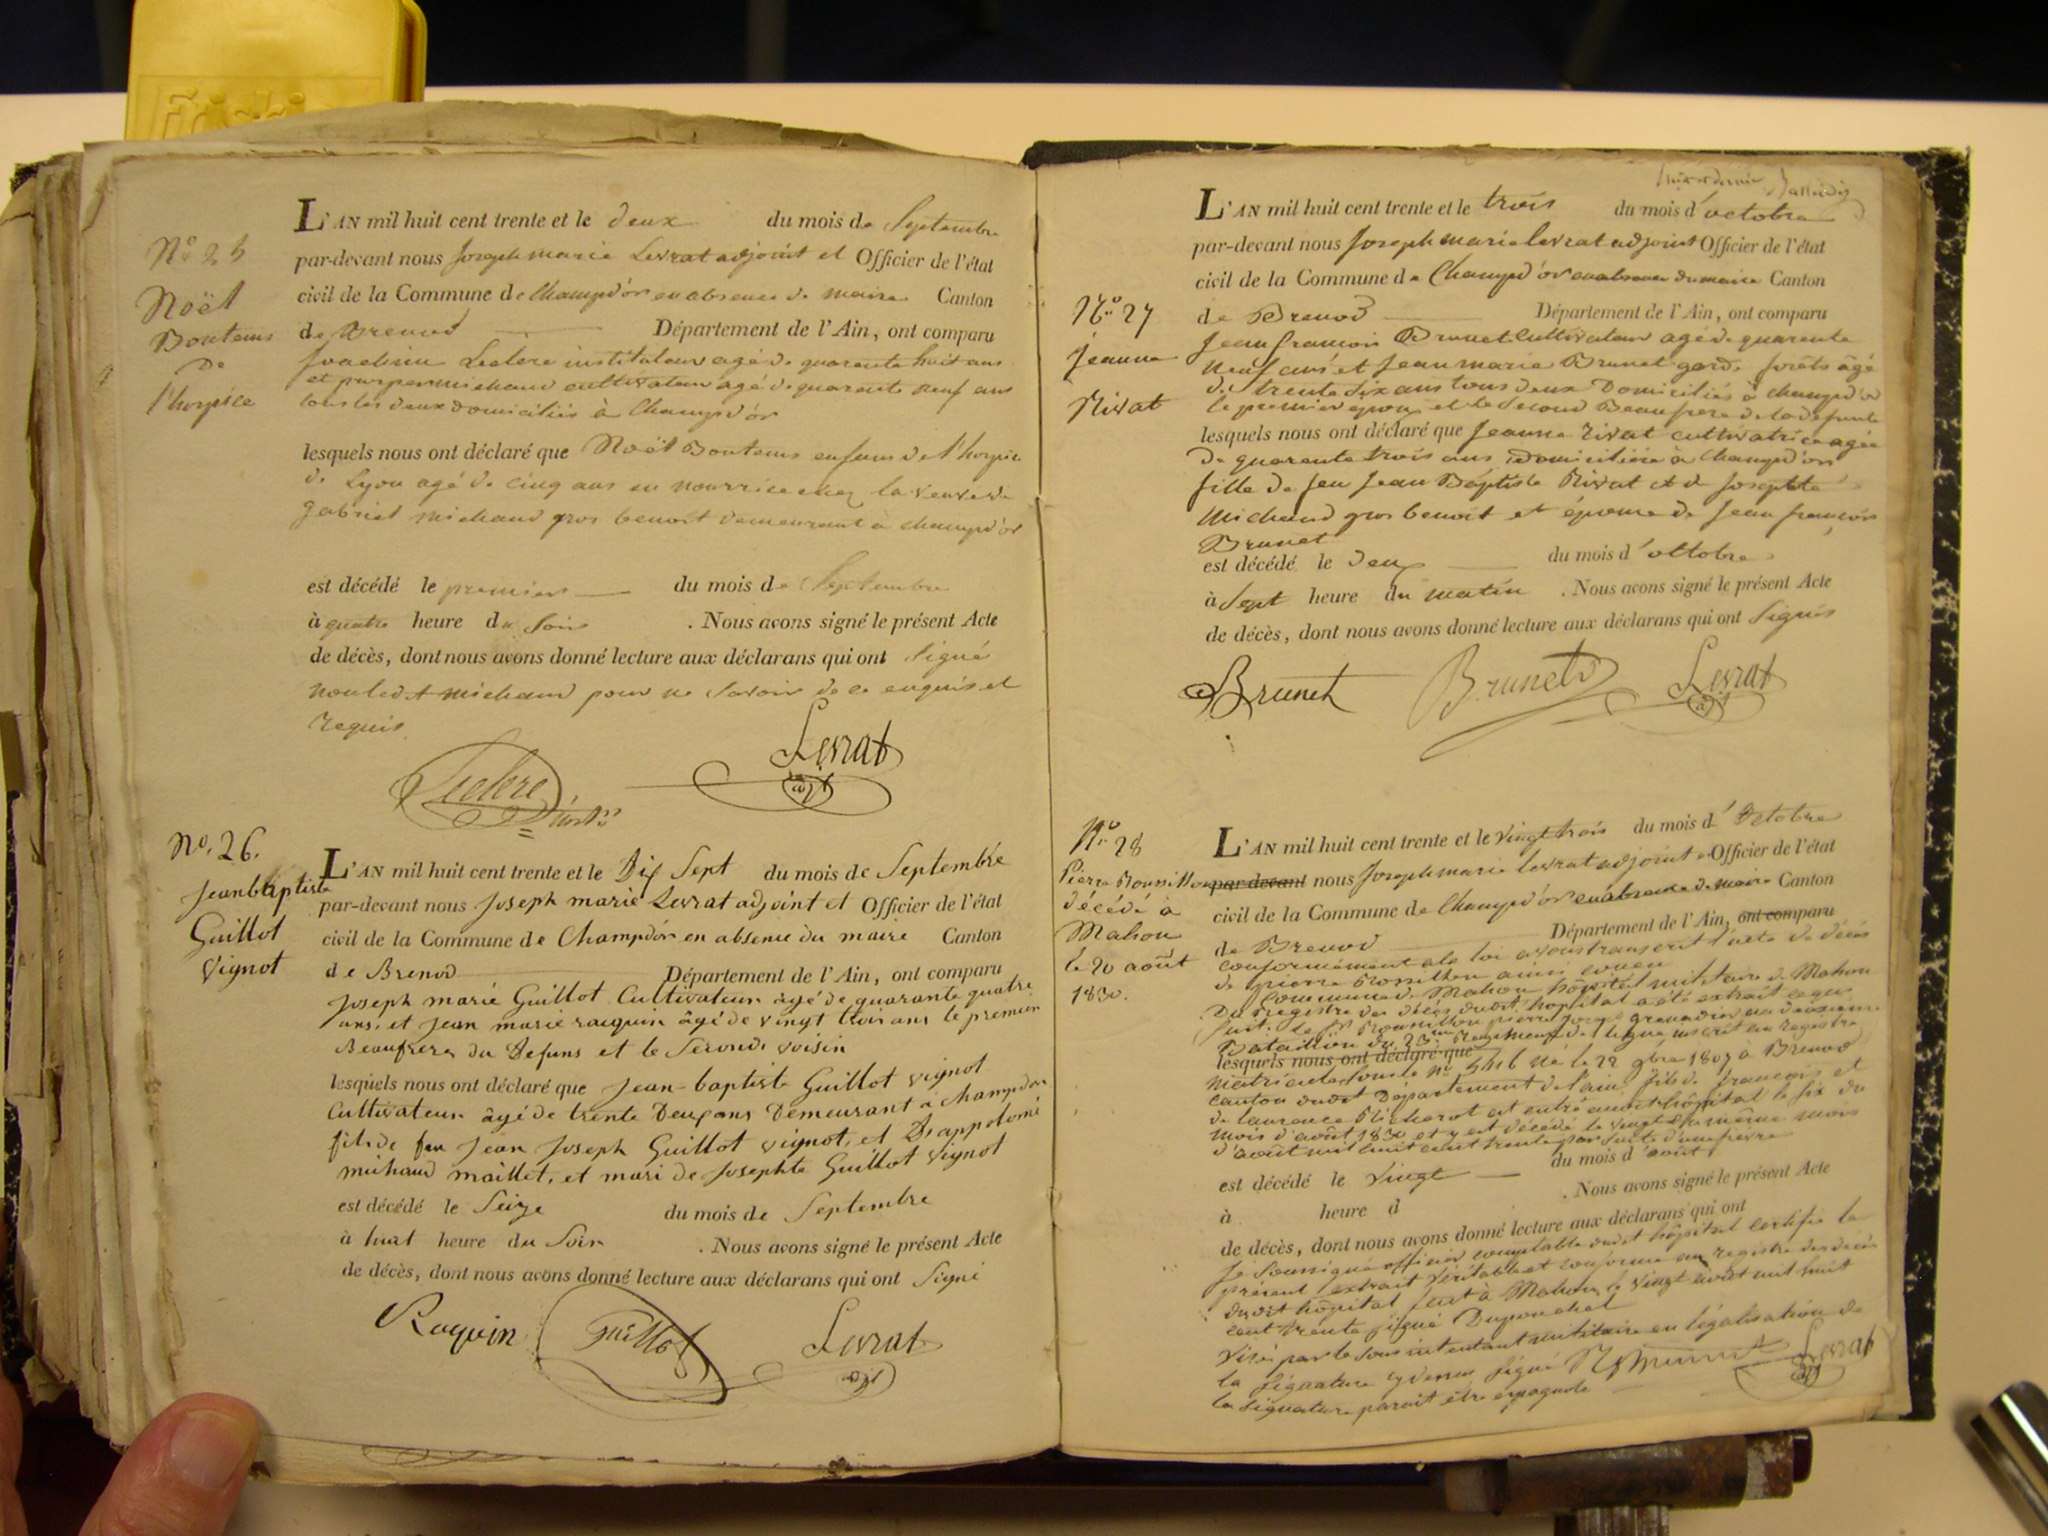 N° 25
Noël
Boutems
De
l'hospice
L'AN mil huit cent trente et le deux du mois de Septembre
par-devant nous Joseph marie Levrat adjoint et Officier de l'état
civil de la Commune de Champd'or en absence de maire Canton
de Brenod Département de l'Ain, ont comparu
Joachim Leclere instituteur agé de quarente huit ans
et michaud cultivateur agé de quarente neuf ans
tous les deux domiciliés à Champd'or
lesquels nous ont déclaré que Noël Boutems enfans de l'hospice
de Lyon agé de cinq ans en nourrice chez la veuve de
gabriel michaud gros benoit demeurant à champd'or
est décédé le premier du mois de Septembre
à quatre heure du Soir . Nous avons signé le présent Acte
de décès, dont nous avons donné lecture aux déclarans qui ont Signé
non ledt michaud pour ne Savoir de ce enquis et
requis
Leclere
Levrat
adjt
No. 26.
Jeanbaptiste
Guillot
Vignot
L'AN mil huit cent trente et le Dix Sept du mois de Septembre
par-devant nous Joseph marie Levrat adjoint et Officier de l'état
civil de la Commune de Champdor en absence du maire Canton
de Brenod Département de l'Ain, ont comparu
Joseph marie Guillot Cultivateur âgé de quarante quatre
ans, et Jean marie racquin âgé de vingt trois ans le premier
Beaufrere du Defuns et le Second voisin
lesquels nous ont déclaré que Jean-baptiste Guillot vignot
Cultivateur âgé de trente Deux ans Demeurant a champdor
fils de feu Jean Joseph Guillot vignot, et D'appolonie
michaud maillet, et mari de Josephte Guillot Vignot
est décédé le Seize du mois de Septembre
à huit heure du Soir . Nous avons signé le présent Acte
de décès, dont nous avons donné lecture aux déclarans qui ont Signé
Raquin Guillot Levrat
adjt
N° 27
Jeanne
Rivat
L'AN mil huit cent trente et le trois du mois d'octobre
par-devant nous Joseph marie levrat adjoint Officier de l'état
civil de la Commune de Champd'or en absence du maire Canton
de Brenod Département de l'Ain, ont comparu
Jean francois Brunet Cultivateur agé de quarente
neuf ans et Jean marie Brunet garde forêts âgé
de trente Six ans tous deux Domiciliés à champd'or
le premier epoux et le Second Beaufrere de la defunte
lesquels nous ont déclaré que Jeanne rivat cultivatrice agée
de quarente trois ans Domiciliée a Champd'or
fille de feu Jean Baptiste Rivat et de Josephte
Michaud gros benoit et épouse de Jean françois
Brunet
est décédé le deux du mois d'octobre
à Sept heure du matin . Nous avons signé le présent Acte
de décès, dont nous avons donné lecture aux déclarans qui ont Signés
Brunet Brunet Levrat
adjt
N° 28
Pierre Roussillon
décédé à
Mahon
le 20 août
1830.
L'AN mil huit cent trente et le Vingt trois du mois d'Octobre
par-devant nous Joseph marie levrat adjoint Officier de l'état
civil de la Commune de Champd'or en absence de maire Canton
de Brenod Département de l'Ain, ont comparu
conformément a la loi avons transcrit l'acte de décès
de pierre Roussillon ainsi conçu
Commune de Mahon hôpital militaire de Mahon
Du registre des décès dudit hôpital a été extrait ce qui
Suit. le Sr Roussillon pierre Joseph grenadier au deuxieme
Bataillon du 23me Regiment de ligne inscrit au registre
lesquels nous ont déclaré que
matricule Sous le n° 5416 né le 22 9bre 1807 à Brenod
canton dudit Département de l'ain fils de francois et
de laurence entré audit hôpital le six du
mois d'août 1830 et y est décédé le vingt du même mois
d'août mil huit cent trente par suite d'une fievre
est décédé le Vingt du mois d'août
à heure d . Nous avons signé le présent Acte
de décès, dont nous avons donné lecture aux déclarans qui ont
Je Soussigné officier comptable dudit hôpital certifie le
présent extrait Véritable et conforme au registre des décès
dudit hôpital fait à Mahon le Vingt août mil huit
cent trente signé Duponchel
Visé par le Sous intendant militaire en légalisation de
la Signature cy dessus Signé
la Signature parait être espagnole
Levrat
adjt